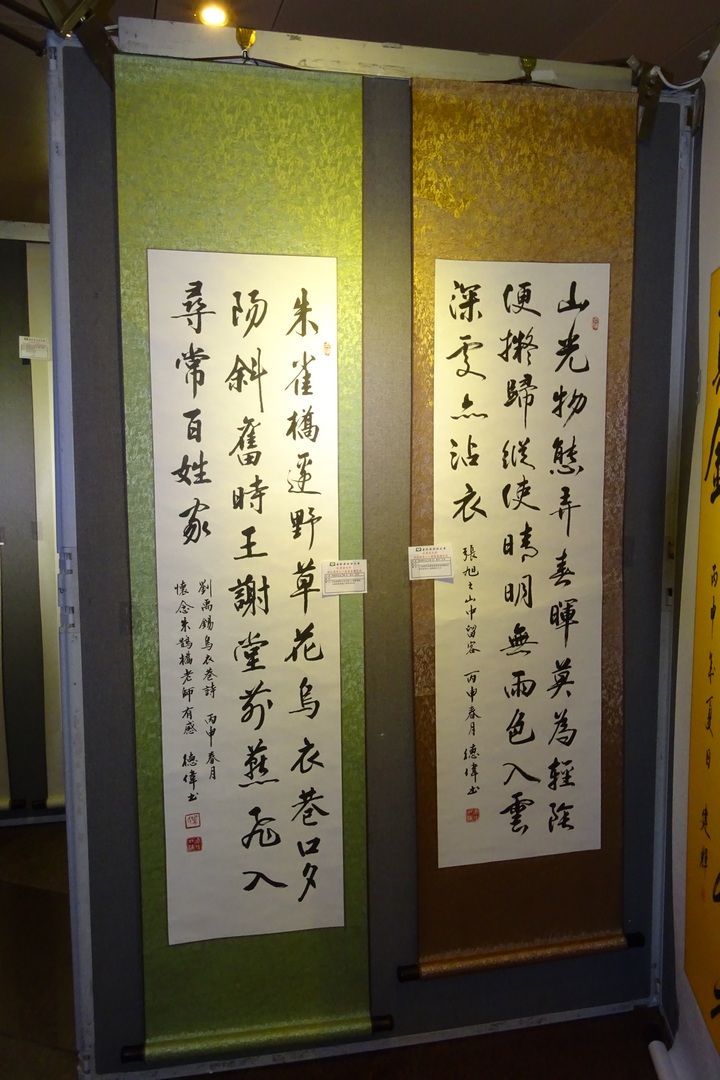 山光物態弄春暉莫為輕陰
便擬歸縱使晴明無雨色入雲
深處亦沾衣
張旭之山中留客 丙申春月 德偉书
朱雀橋邊野草花烏衣巷口夕
陽斜舊時王謝堂前燕飛入
尋常百姓家
劉禹錫烏衣巷詩 丙申春月
懷念朱鵲橋老師有感 德偉书
丙申年夏日